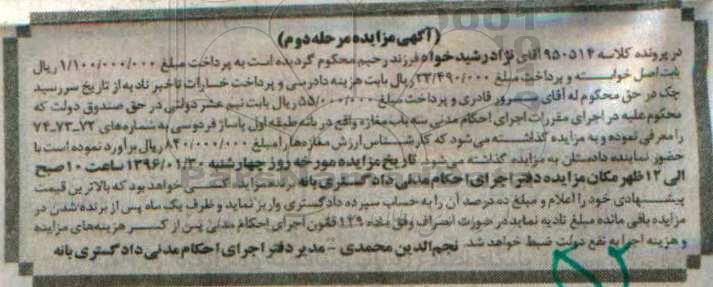 (آگهی مزایده مرحله دوم)
در پرونده کلاسه ۹۵۰۵۱۴ آقای نژاد رشید خواه فرزند رحیم محکوم گردیده است به پرداخت مبلغ ۱/۱۰۰/۰۰۰/۰۰۰ ریال
بابت اصل خواسته و پرداخت مبلغ ۳۳/۴۹۰/۰۰۰ ریال بابت هزینه دادرسی و پرداخت خسارات تاخیر تادیه از تاریخ سررسید
چک در حق محکوم له آقای مسرور قادری و پرداخت مبلغ ۵۵/۰۰۰/۰۰۰ ریال بابت نیم عشر دولتی در حق صندوق دولت که
محکوم علیه در اجرای مقررات اجرای احکام مدنی سه باب مغازه واقع در بانه طبقه اول پاساژ فردوسی به شماره های ۷۲_۷۳_۷۴
را معرفی نموده و به مزایده گذاشته می شود که کارشناس ارزش مغازه ها را مبلغ ۸۴۰/۰۰۰/۰۰۰ ریال برآورد نموده است با
حضور نماینده دادستان به مزایده گذاشته می شود تاریخ مزایده مورخه روز چهارشنبه ۱۳۹۶/۰۱/۳۰ ساعت ۱۰ صبح
الی ۱۲ ظهر مکان مزایده دفتر اجرای احکام مدنی دادگستری بانه برنده مزایده کسی خواهد بود که بالاترین قیمت
پیشنهادی خود را اعلام و مبلغ ده درصد آن را به حساب سپرده دادگستری واریز نماید و ظرف یک ماه پس از برنده شدن در
مزایده باقی مانده مبلغ تادیه نماید در صورت انصراف وفق ماده ۱۲۹ قانون اجرای احکام مدنی پس از کسر هزینه های مزایده
و هزینه اجرا به نفع دولت ضبط خواهد شد. نجم الدین محمدی - مدیر دفتر اجرای احکام مدنی دادگستری بانه